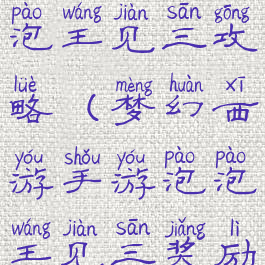 pào wáng jiàn sān gōng
泡王见三攻
lüè mèng huàn xī
略（梦幻西
yóu shǒu yóu pào pào
游手游泡泡
wáng jiàn sān jiǎng lì
王见三奖励